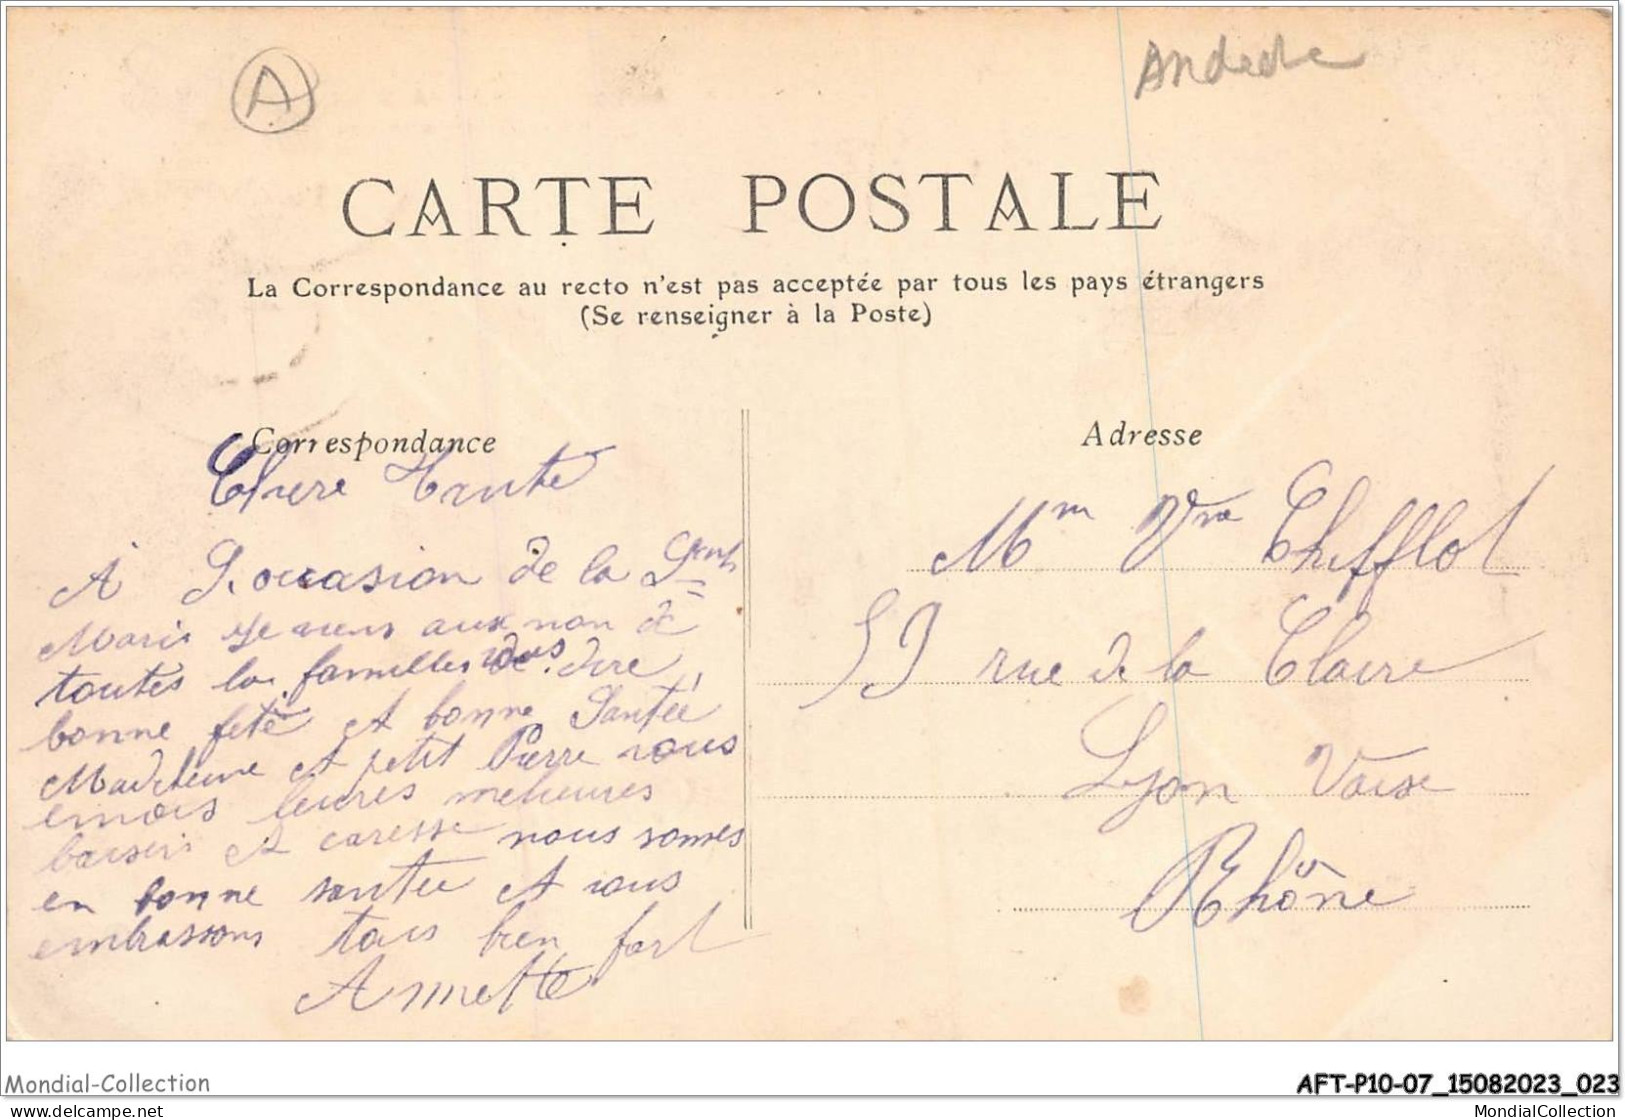 A
CARTE POSTALE
La Correspondance au recto n'est pas acceptée par tous les pays étrangers
(Se renseigner à la Poste)
Correspondance
Chere Tante
A l'occasion de la
Marie je viens aux non de
toutes la familles vous dire
bonne fete et bonne Santée
Madeleine et petit Pierre vous
envois leures meheures
baisers et caresse nous somes
en bonne santée et vous
embrassons tous bien fort
Annette
Adresse
Mm Vve Thifflot
59 rue de la Claire
Lyon Vaise
Rhône
Mondial-Collection
AFT-P10-07_15082023_023
https://www.delcampe.net
MondialCollection